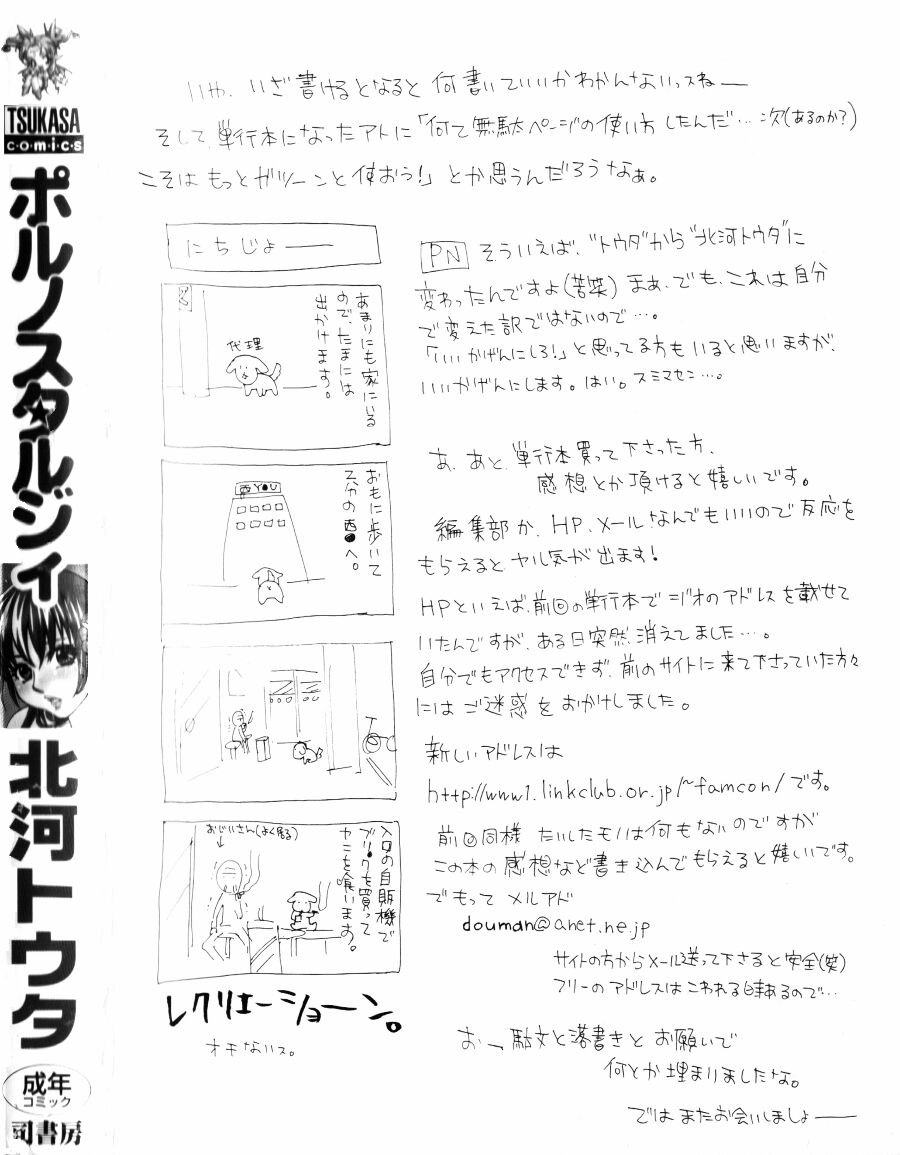 TSUKASA
comics
ポルノスタルジィ
北河トウタ
成年
コミック
司書房
いや、いざ書けるとなると何書いていいかわかんないっスね——
そして単行本になったアトに「何て無駄ページの使い方したんだ…次(あるのか?)
こそはもっとガツーンと使おう!」とか思うんだろうなぁ。
にちじょ——
あまりにも家にいる
ので、たまには
出かけます。
代理
おもに歩いて
2分の西●へ。
西YOU
おじいさん(よく居る)
入口の自販機で
ブリ●クを買って
ヤニを喰います。
レクリエーショーン。
オチないス。
PN そういえば、“トウタ”から“北河トウタ”に
変わったんですよ(苦笑) まぁ、でも、これは自分
で変えた訳ではないので…。
「いいかげんにしろ!」と思ってる方もいると思いますが、
いいかげんにします。はい。スミマセン…。
あ、あと、単行本買って下さった方、
感想とか頂けると嬉しいです。
編集部か、HP、メールなんでもいいので反応を
もらえるとヤル気が出ます!
HPといえば、前回の単行本でジオのアドレスを載せて
いたんですが、ある日突然消えてました…。
自分でもアクセスできず、前のサイトに来て下さっていた方々
にはご迷惑をおかけしました。
新しいアドレスは
http://www1.linkclub.or.jp/~famcon/です。
前回同様 たいしたモノは何もないのですが
この本の感想など書き込んでもらえると嬉しいです。
でもって メルアド
douman@anet.ne.jp
サイトの方からメール送って下さると安全(笑)
フリーのアドレスはこわれる時あるので…
お、駄文と落書きとお願いで
何とか埋まりましたな。
では またお会いしましょ——